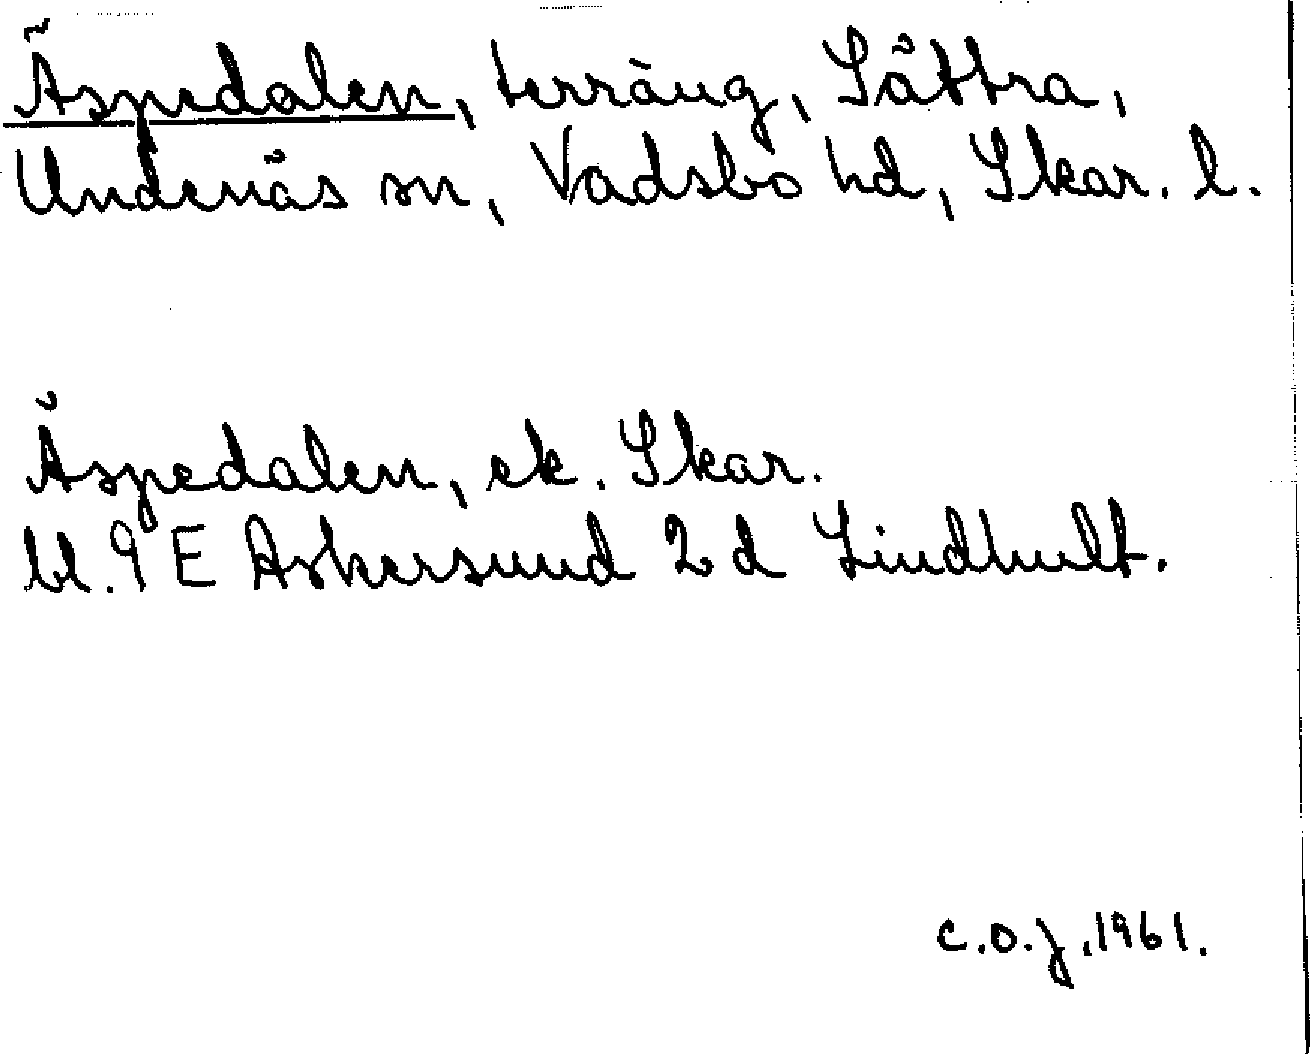 Äspedalen, terräng, Sättra,
Undenäs sn, Vadsbo hd, Skar. l.
Äspedalen, ek. Skar.
bl. 9 E Askersund 2 d Lindhult.
C.O.J. 1961.